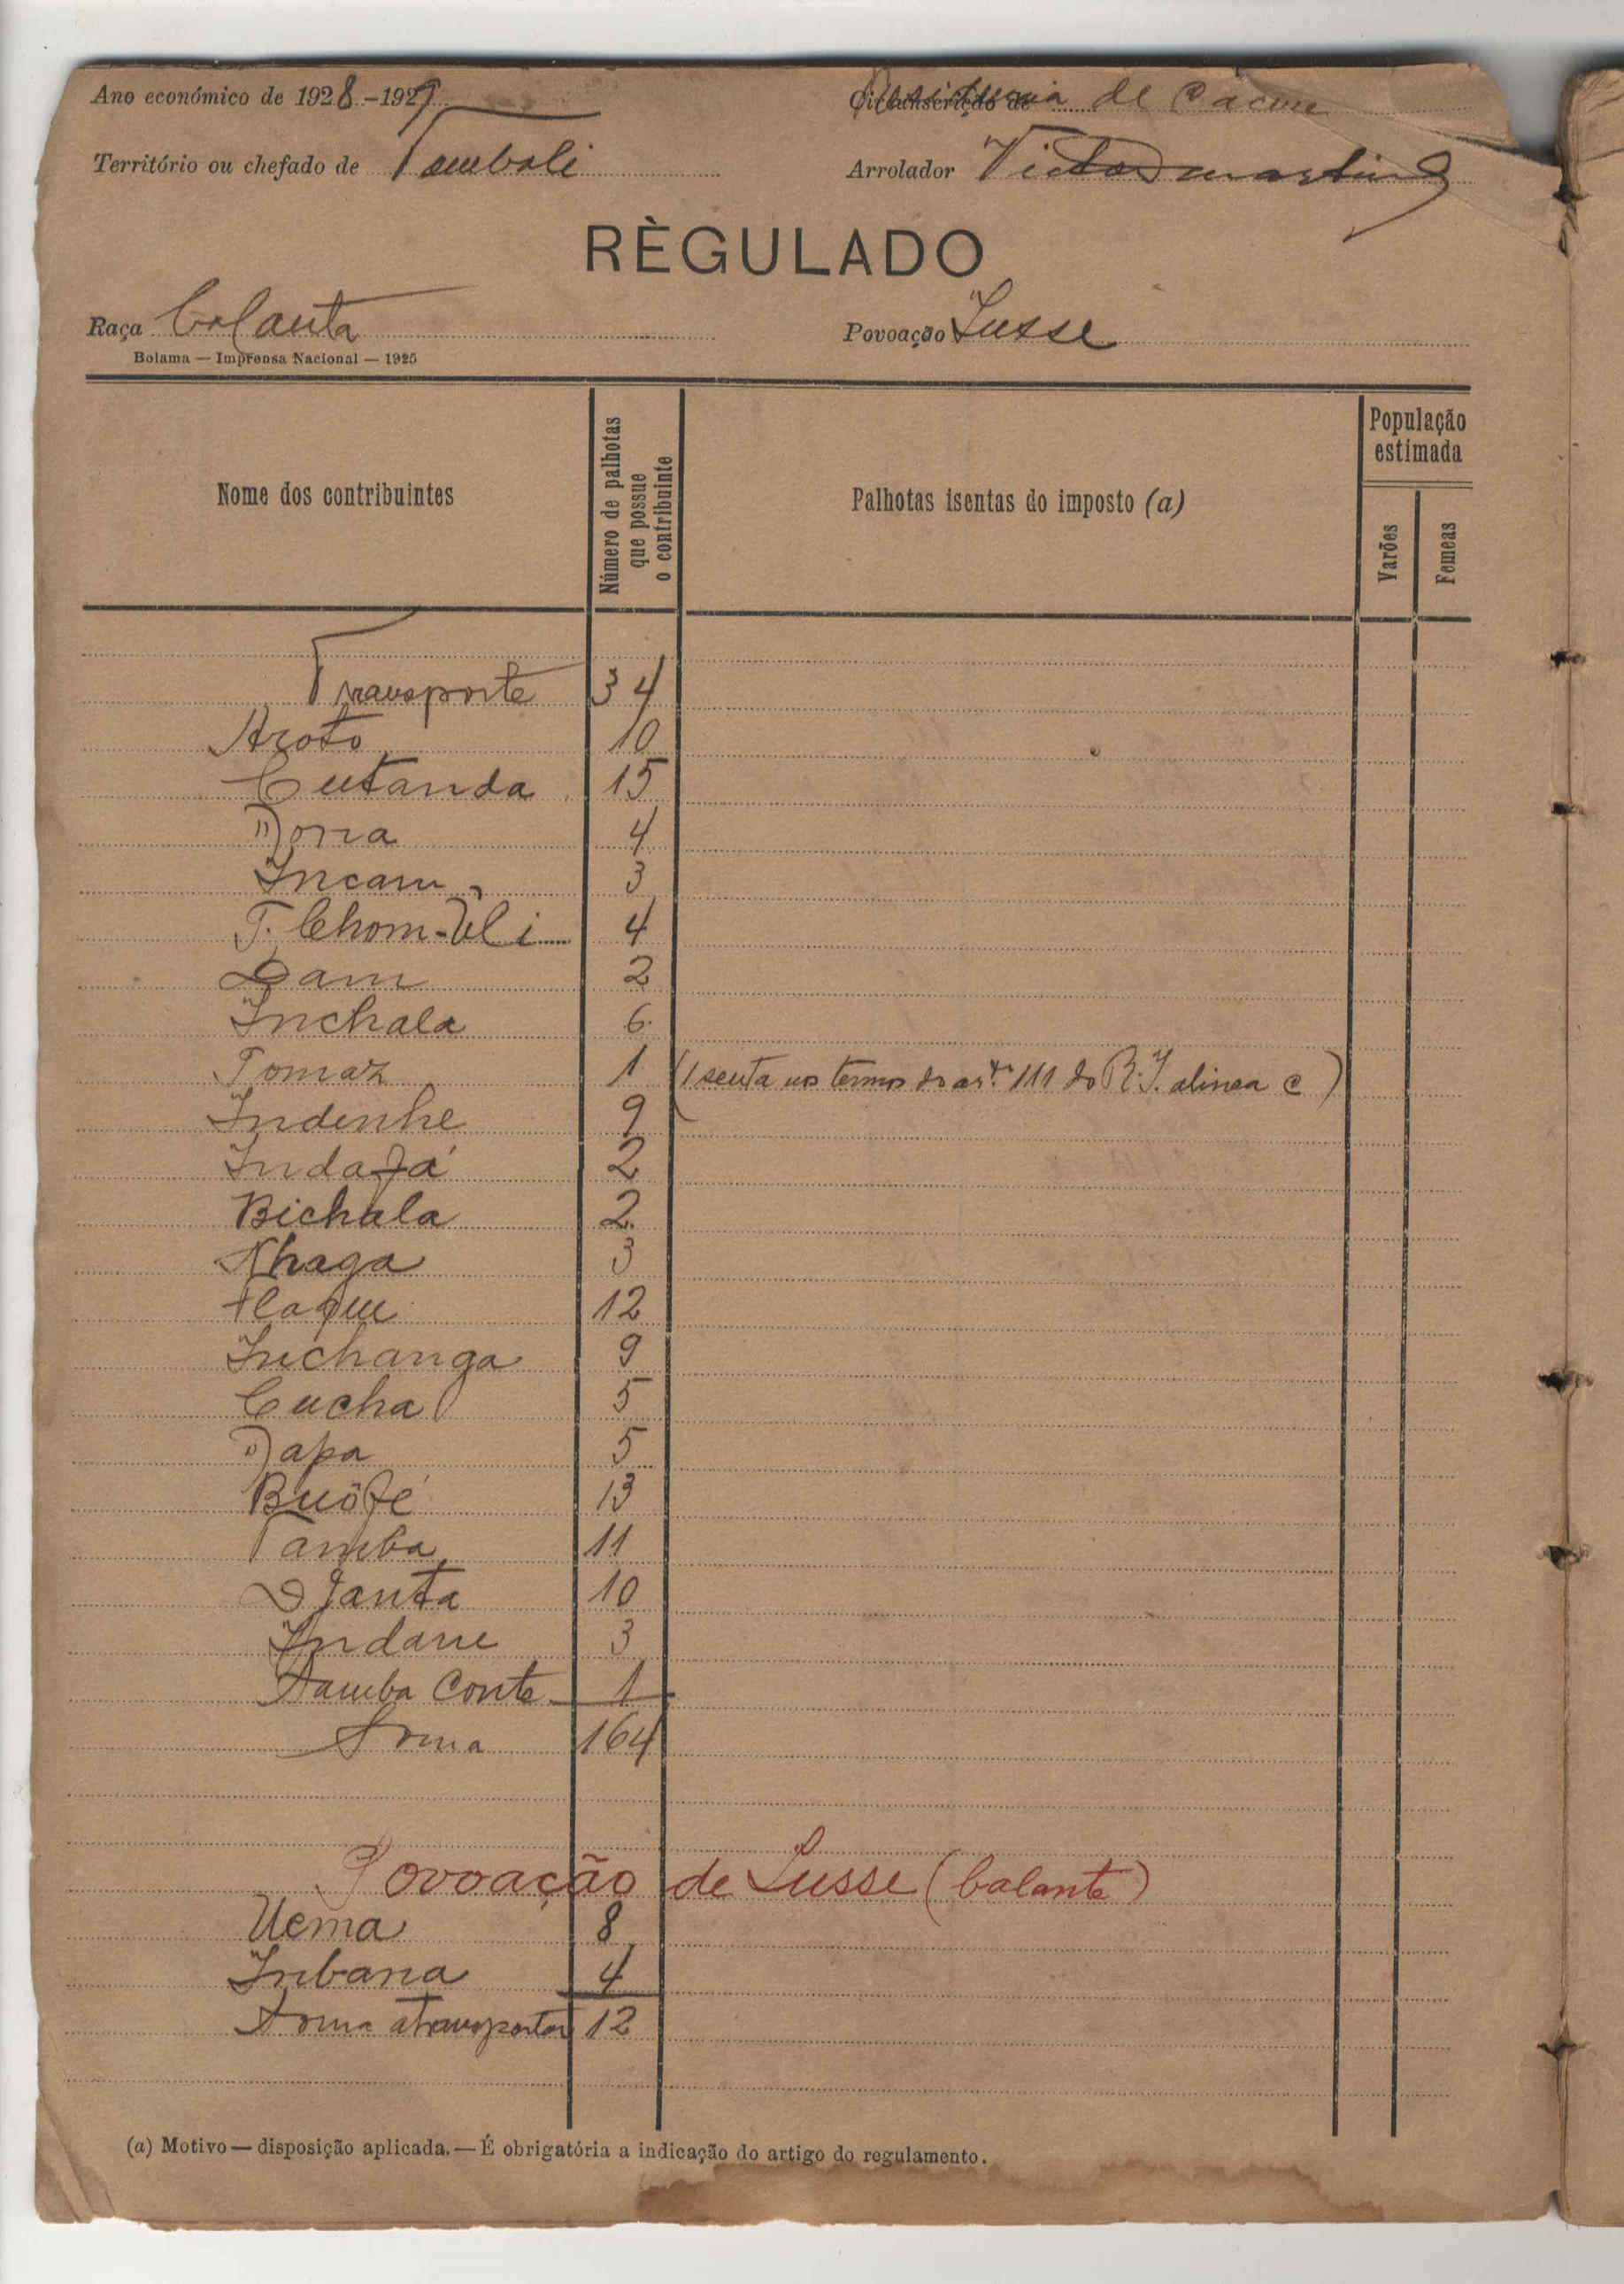 Ano económico de 1928-1929
Residencia de Cacine
Território ou chefado de Tombali
Arrolador Victor Martins
RÈGULADO
Raça balanta
Povoação Lusse
Bolama — Imprensa Nacional — 1925
Nome dos contribuintes
Número de palhotas que possue o contribuinte
Palhotas isentas do imposto (a)
População estimada
Varões
Femeas
Transporte 34
Azoto 10
Cutanda 15
Dona 4
Incam 3
T. Chom-Uli 4
Dam 2
Inchala 6
Tomaz 1 (Isenta nos termos do artº 111 do R. I. alinea c)
Indenhe 9
Indafá 2
Bichala 2
Nhaga 3
12
Inchanga 9
Cucha 5
Dapa 5
Buôfé 13
Tamba 11
Djanta 10
Indane 3
Samba Conte 1
Soma 164
Povoação de Lusse (balante)
Uema 8
Inbana 4
Soma a transportar 12
(a) Motivo — disposição aplicada. — É obrigatória a indicação do artigo do regulamento.